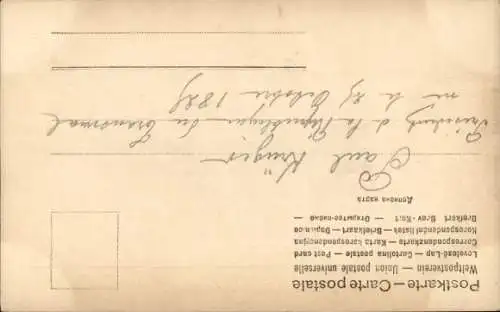 Postkarte — Carte postale
Weltpostverein — Union postale universelle
Levelező-Lap — Cartolina postale — Post card
Correspondenzkarte — Karta korespondencyjna
Korespondenční lístek — Briefkaart —
Brefkort — Brev-Kort —
Дописна карта
Paul Krüger
Président de la République du Transvaal
né le Octobre 1825